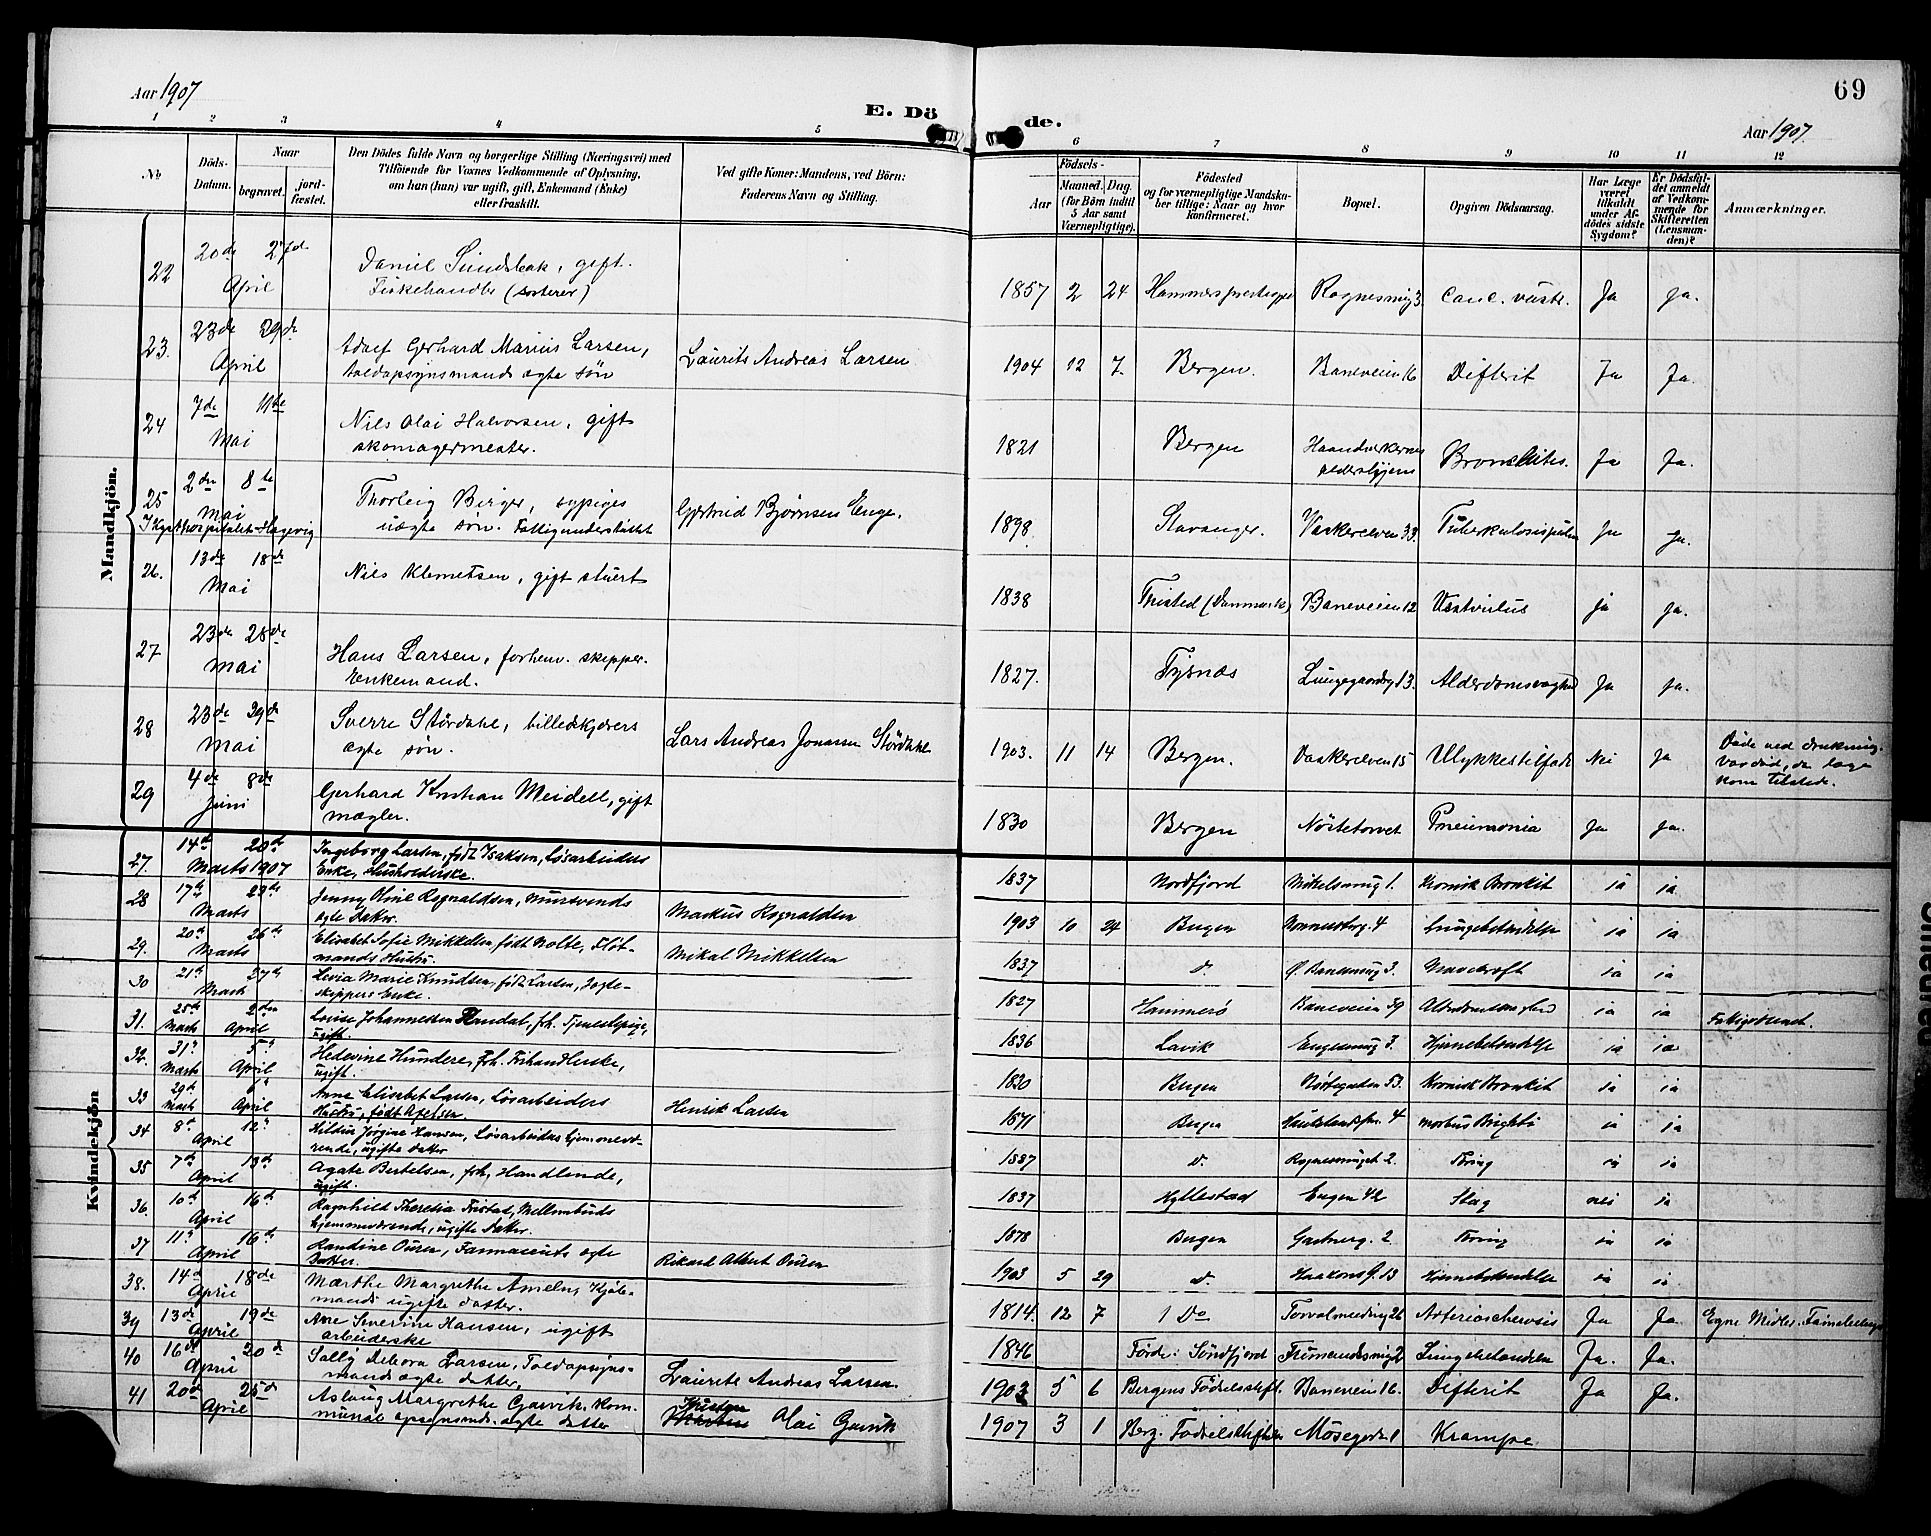 69
Aar 1907
E. Dö
de.
Aar 1907.
1 2 3 4 5
6 7 8 9 10 11 12
No
Döds-
Datum.
Naar
begravet.
jord-
fæstet.
Den Dödes fulde Navn og borgerlige Stilling (Næringsvei) med
Tilföiende for Voxnes Vedkommende af Oplysning,
om han (hun) var ugift, gift, Enkemand (Enke)
eller fraskilt.
Ved gifte Koner: Mandens, ved Börn:
Faderens Navn og Stilling.
Födsels-
Aar
Maaned. Dag.
(for Börn indtil
5 Aar samt
Værnepligtige).
Födested
og for værnepligtige Mandska-
ber tillige: Naar og hvor
konfirmeret.
Bopæl.
Opgiven Dödsaarsag.
Har Læge
været
tilkaldt
under Af-
dödes sidste
Sygdom?
Er Dödsfal-
det anmeldt
af Vedkom-
mende for
Skifteretten
(Lensman-
den)?
Anmærkninger.
Mandkjön.
22 20de 27de
April
Daniel Sundsbak, gift.
Fiskehandler (sorterer)
1857 2 24 Hammers prestegjæld Rognesmug 3 Canc. ventr. Ja ja.
23. 23de 29de
April
Adolf Gerhard Marius Larsen,
toldopsynsmands ægte søn
Laurits Andreas Larsen
1904 12 7 Bergen. Baneveien 16 Difterit Ja Ja.
24 7de 11te
Mai
Nils Olai Halvorsen, gift
skomagermester.
1821 Bergen Haandverkernes
aldershjem Bronchites. Ja Ja.
25 2den 8te
Mai
Thorleig Berger, sypiges
uægte søn. Fattigunderstøttet
Gjertrud Bjørnsen Enge.
I Kysthospitalet Hagevig
1898. Stavanger. Vaskerelven 33 Ja Ja.
26. 13de 18de
Mai
Nils Klemetsen, gift stuert
1838 Thisted (Danmark) Baneveien 12 ja ja.
27 23de 28de
Mai
Hans Larsen, forhenv. skipper.
Enkemand.
1827. Tysnæs Lungegaardsg 13. Alderdomssvaghed Ja ja.
28 23de 29de
Mai
Sverre Stördahl, billedskjærers
ægte søn.
Lars Andreas Jonassen Stördahl
1903. 11 14 Bergen. Vaskerelven 15 Ulykkestilfælde Nei Ja
Døde ved drukning.
Var død, da læge
kom tilstede.
29 4de 8de
Juni
Gerhard Kristian Meidell, gift
mægler.
1830 Bergen Nøstetorvet Pneumonia Ja ja.
Kvindekjön
27. 14de 20de
Marts 1907
Ingeborg Larsen, født Isaksen, Løsarbeiders
Enke, Husholderske.
1837 Nordfjord Mikelsmug 1. Kronisk Bronkit ja ja
28 17de 23de
Marts
Jenny Oline Rognaldsen, Mursvends
ægte Datter.
Markus Rognaldsen
1903 10 24 Bergen Nonneseterg. 4 Lungebetændelse ja ja
29. 20de 26de
Marts
Elisabet Sofie Mikkelsen født Nolte, Fløt-
mands Hustru.
Mikal Mikkelsen
1837 do Ø. Banesmug 3. Mavekræft ja ja
30 21de 27de
Marts
Marie Knudsen, født Larsen, Jagte-
skippers Enke.
1827 Hammerø Baneveien 39 Alderdomssvaghed ja ja
31. 25de 2den
Marts April
Lovise Johannessen Flendal, fh. Tjenestepige,
ugift.
1836 Lavik Engesmug 3. Hjernebetændelse ja ja
Fattigvæsenet.
32. 31te 5te
Marts April
Hedevine Hundere, fh. Frihandlerske,
ugift.
1820 Bergen Nøstegaten 53. Kronisk Bronkit ja ja
33 29de 6te
Marts April
Anne Elisabet Larsen, Løsarbeiders
Hustru, født Axelsen
Henrik Larsen
1871 Bergen 4 Morbus Brighti ja ja
34. 8de 12te
April
Hildur Jørgine Hansen, Løsarbeiders hjemmevæ-
rende, ugifte Datter
1887 do Rognesmuget 2. Tæring ja ja
35 7de 13de
April
Agate Bertelsen, fh. Handlende,
ugift.
1837 Hyllestad Engen 42 Slag nei ja
36. 10de 16de
April
Ragnhild Theresia Tristad,
hjemmeværende, ugifte Datter.
1878 Bergen Gartnerg. 2 Tæring ja ja
37 11te 16de
April
Randine Ousen, Farmaceuts ægte
Datter.
Rikard Albert Ousen
1903 5 29 do Haakonsg. 13 Hjernebetændelse ja ja
38. 14de 18de
April
Marthe Margrethe Ameln, Kjøb-
mands ugifte datter.
1814. 12 7 Do Torvalmenning 26 Arterioscherosis Ja Ja
39 13de 19de
April
Ane Severine Hansen, ugift
arbeiderske
1846 Førde: Søndfjord Lungebetændelse Ja. Ja.
40 16de 20de
April
Sally Debora Larsen, Toldopsyns-
mands ægte datter.
Laurits Andreas Larsen
1903 5 6 Bergens Fødselsstift. Baneveien 16. Difterit Ja Ja.
41 20de 25de
April
Aslaug Margrethe Garvik, Kom-
munal opsynsmds. ægte datter
Kristen Olai Garvik
1907 3 1 Berg. Fødselsstiftelse Møsegd. 1 Krampe.